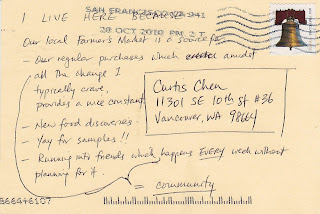 I LIVE HERE BECAUSE
SAN FRANCISCO CA 941
20 OCT 2010 PM 2 T
Our local Farmer's Market is a source for
- Our regular purchases which amidst
all the change I
typically crave,
provides a nice constant.
- New food discoveries.
- Yay for samples!!
- Running into friends which happens EVERY week without
planning for it.
= community
Curtis Chen
11301 SE 10th St #36
Vancouver, WA 98664